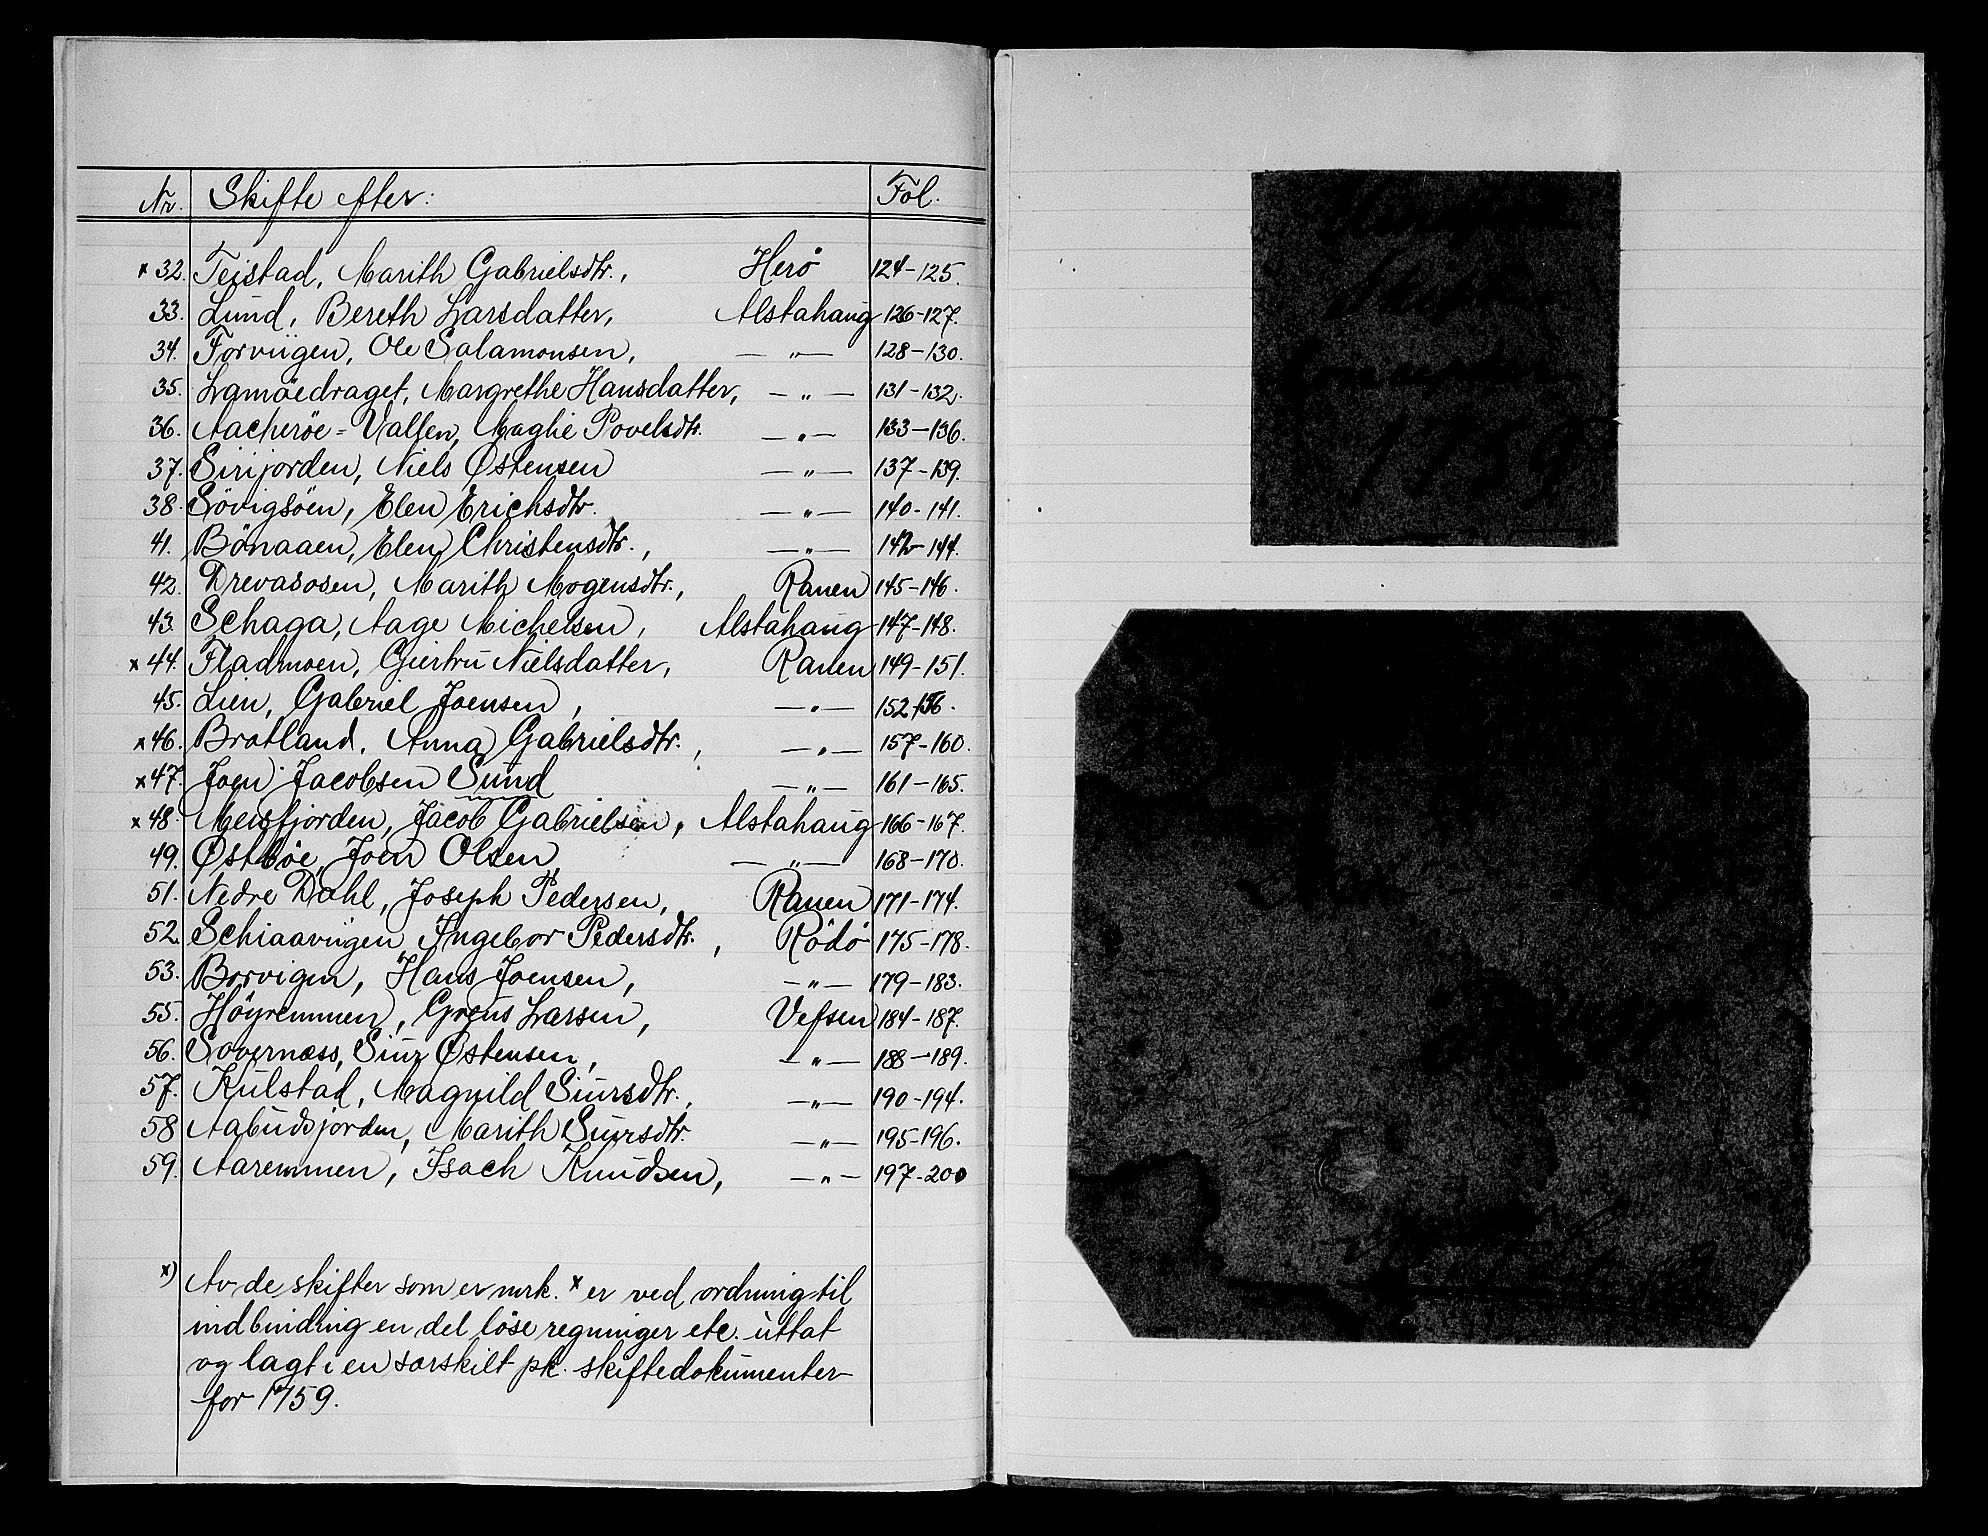 Nr. Skifte efter: Fol.
x 32. Teistad, Marith Gabrielsdtr., Herö 124-125.
33. Lund, Bereth Larsdatter, Alstahaug 126-127.
34. Forviigen, Ole Salamonsen, — " — 128-130.
35. Lamöedraget, Margrethe Hansdatter, — " — 131-132.
36. Aacheröe-Valfen, Maghe Povelsdtr. — " — 133-136.
37. Sirijorden, Niels Østensen — " — 137-139.
38. Sövigsöen, Elen Erichsdtr. — " — 140-141.
41. Bönaaen, Elen Christensdtr., — " — 142-144.
42. Drevasosen, Marith Mogensdtr., Ranen 145-146.
43. Schaga, Aage Michelsen, Alstahaug 147-148.
x 44. Fladmoen, Giertru Nielsdatter, Ranen 149-151.
45. Lien, Gabriel Joensen, — " — 152-156.
x 46. Bratland, Anna Gabrielsdtr., — " — 157-160.
x 47. Joen Jacobsen Sund — " — 161-165.
x 48. Meisfjorden, Jacob Gabrielsen, Alstahaug 166-167.
49. Østböe, Joen Olsen — " — 168-170.
51. Nedre Dahl, Joseph Pedersen, Ranen 171-174.
52. Schiaaviigen, Ingebor Pedersdtr., Rödö 175-178.
53. Borvigen, Hans Joensen, — " — 179-183.
55. Höyremmen, Greus Larsen, Vefsen 184-187.
56. Sovernæss, Siur Østensen, — " — 188-189.
57. Kulstad, Magnild Siursdtr., — " — 190-194.
58. Aabudsjorden, Marith Siursdtr. — " — 195-196.
59. Aaremmen, Isach Knudsen, — " — 197-200
x) Av de skifter som er mrk. x er ved ordning til
indbinding en del löse regninger etc. uttat
og lagt i en særskilt pk. skiftedokumenter
for 1759.
1759